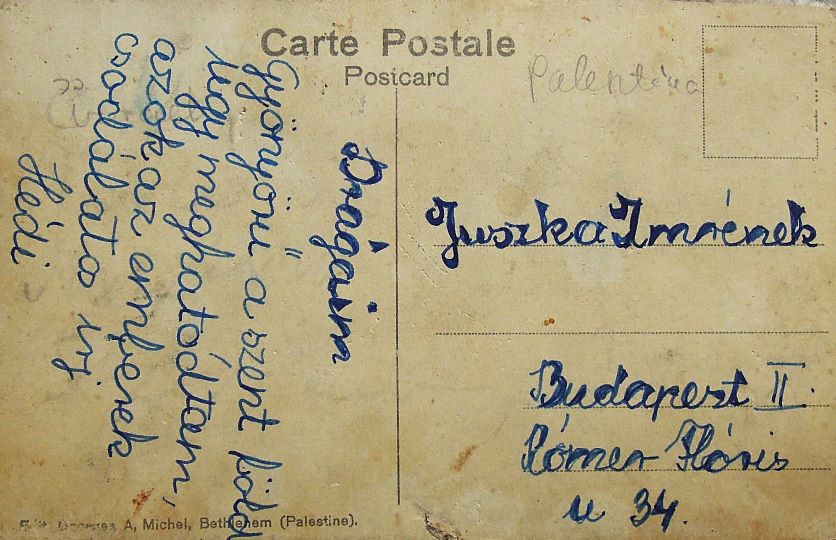 Carte Postale
Postcard
Palentina
Drágáim
Gyönyörű a szent föld
úgy meghatódtam,
azok az emberek
csodálatos új
Hédi
Juszka Imrének
Budapest II.
Rómer Flóris
u 34.
A, Michel, Bethlehem (Palestine).